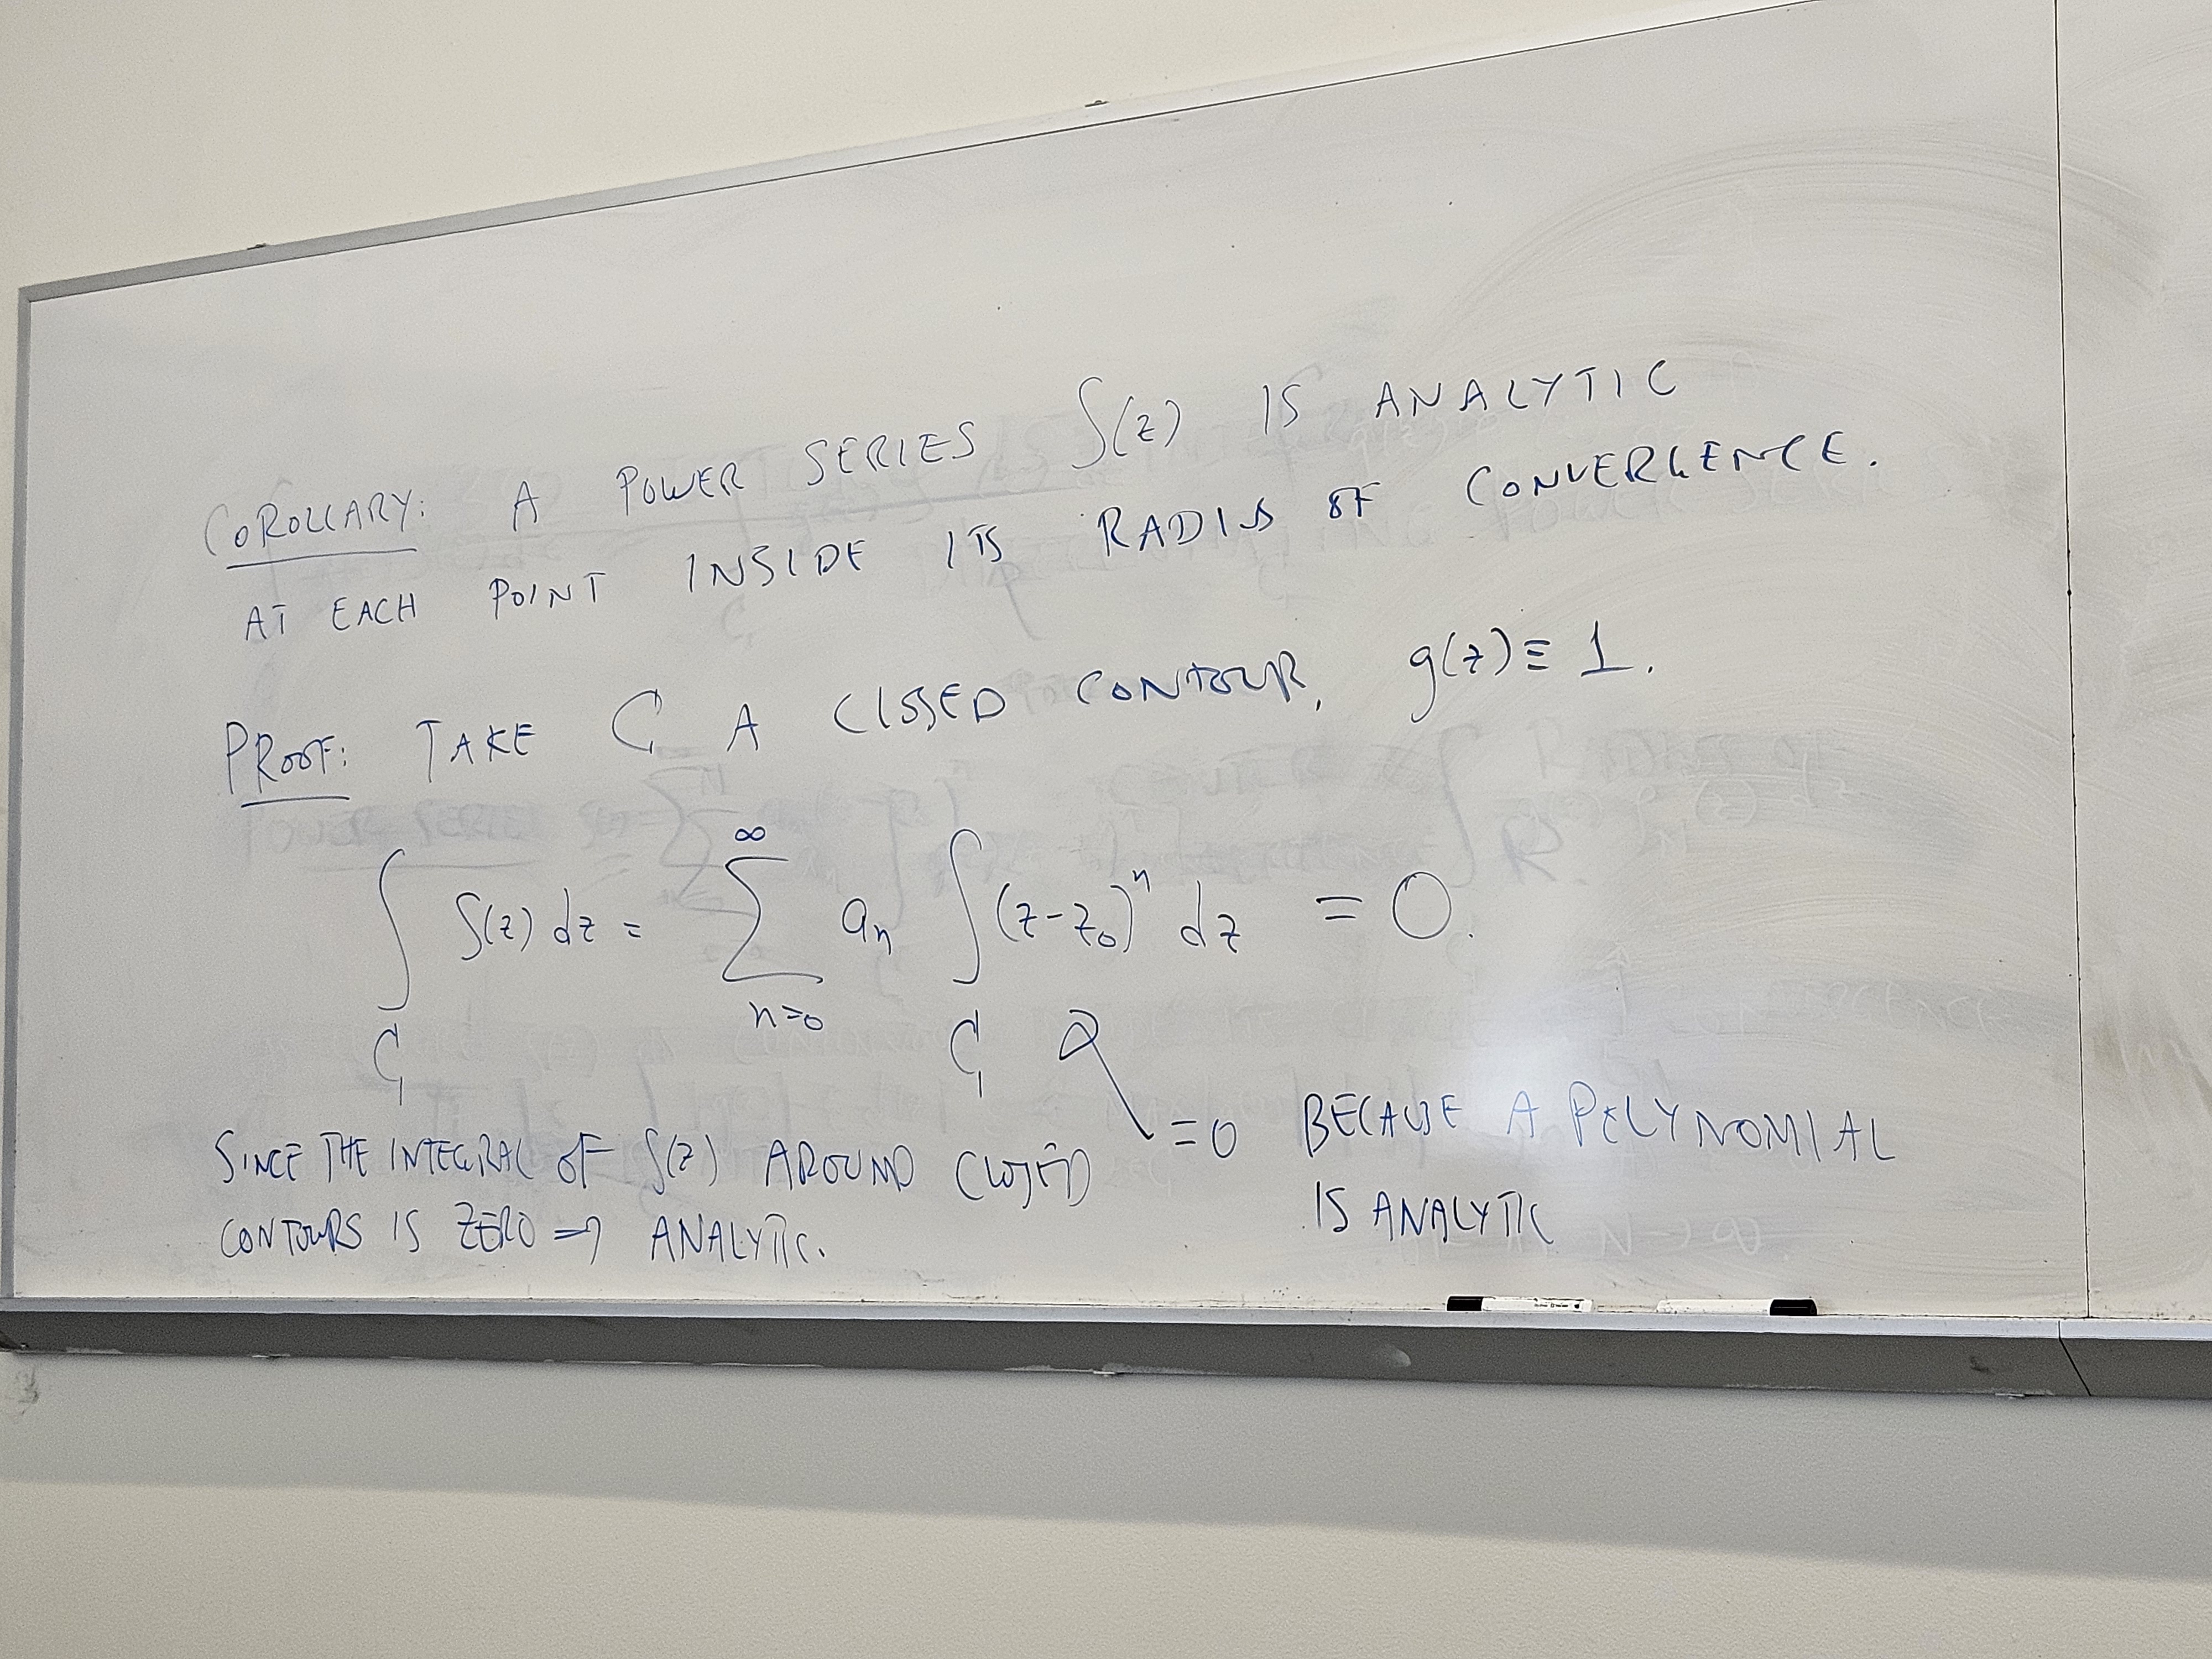 COROLLARY: A POWER SERIES S(z) IS ANALYTIC
AT EACH POINT INSIDE ITS RADIUS OF CONVERGENCE.
PROOF: TAKE C A CLOSED CONTOUR, g(z) ≡ 1.
∫_C S(z) dz = ∑_{n=0}^{∞} a_n ∫_C (z-z_0)^n dz = 0.
= 0 BECAUSE A POLYNOMIAL
IS ANALYTIC
SINCE THE INTEGRAL OF S(z) AROUND CLOSED
CONTOURS IS ZERO ⇒ ANALYTIC.